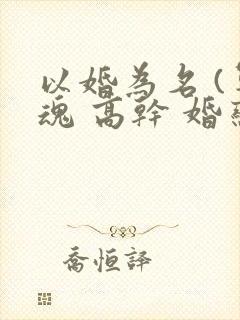 以婚為名(
魂 高幹 婚
喬恒譯